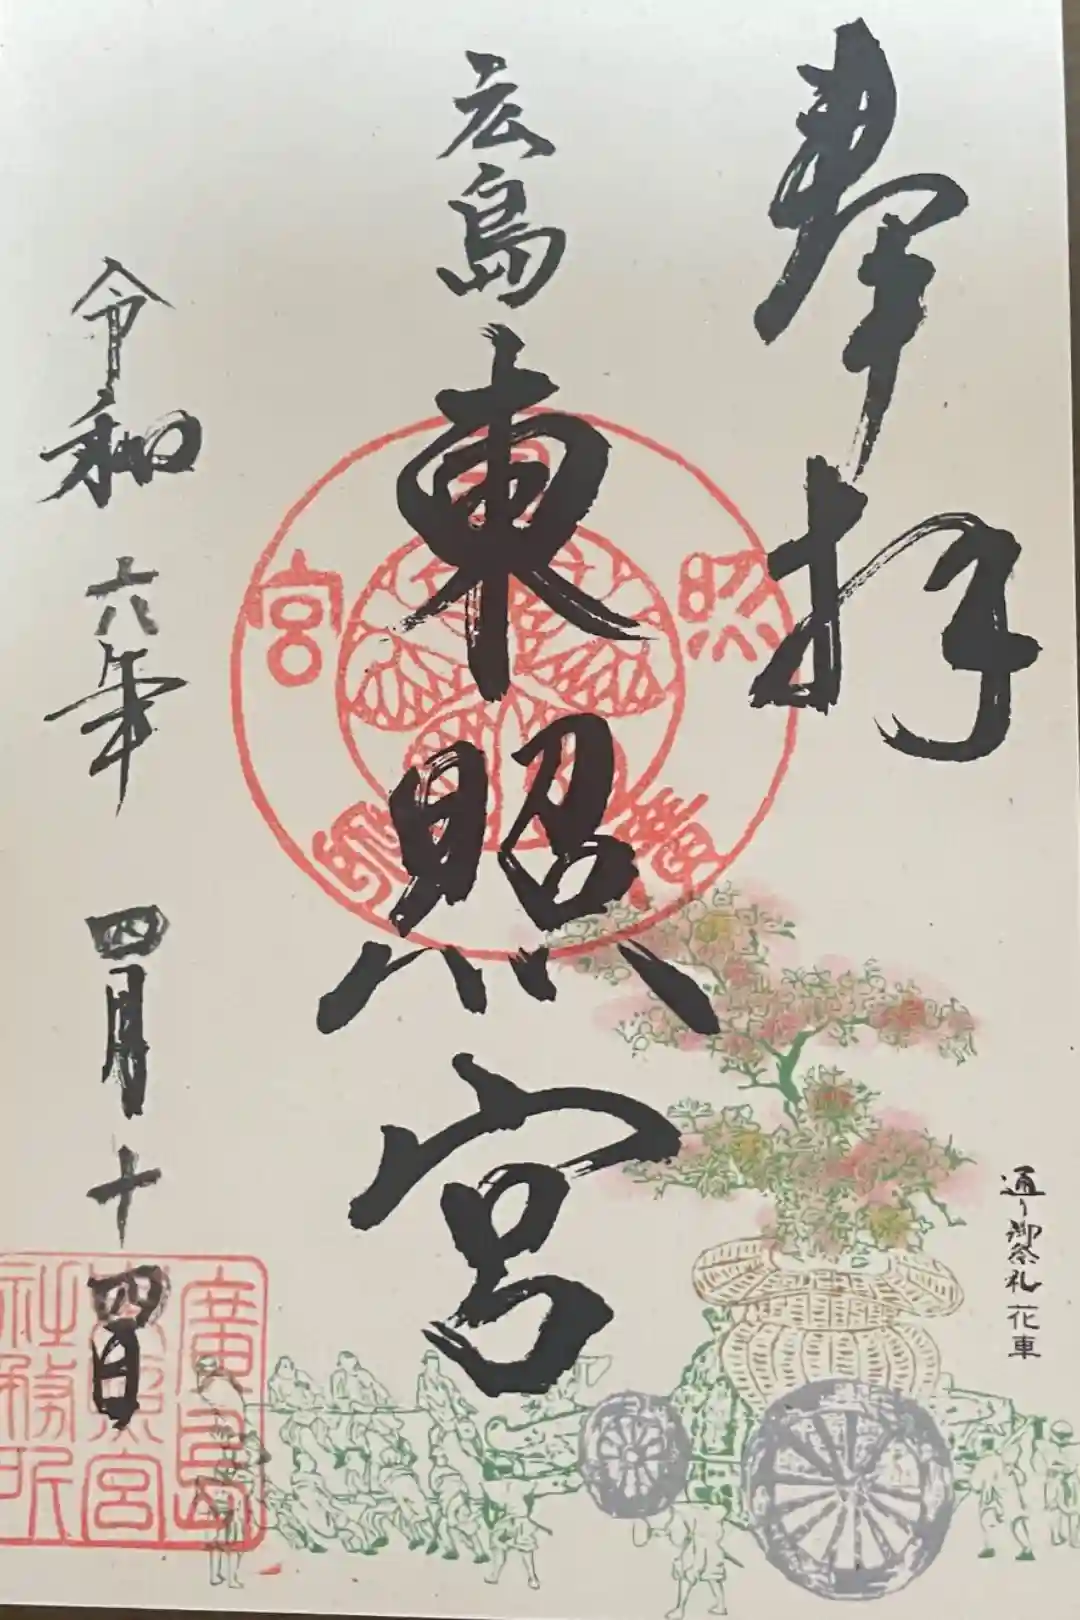 奉拝
広島
東照宮
令和六年四月十四日
通り御祭礼花車
廣島
東照宮
社務所